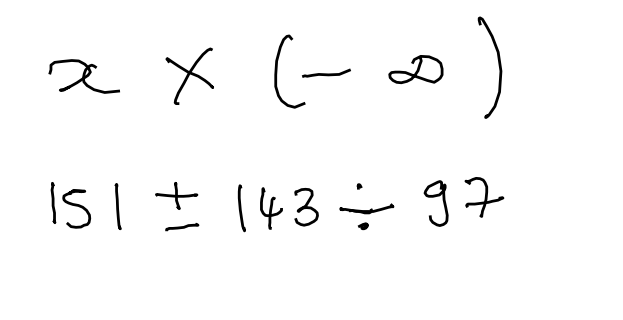 x × (− ∞)
151 ± 143 ÷ 97